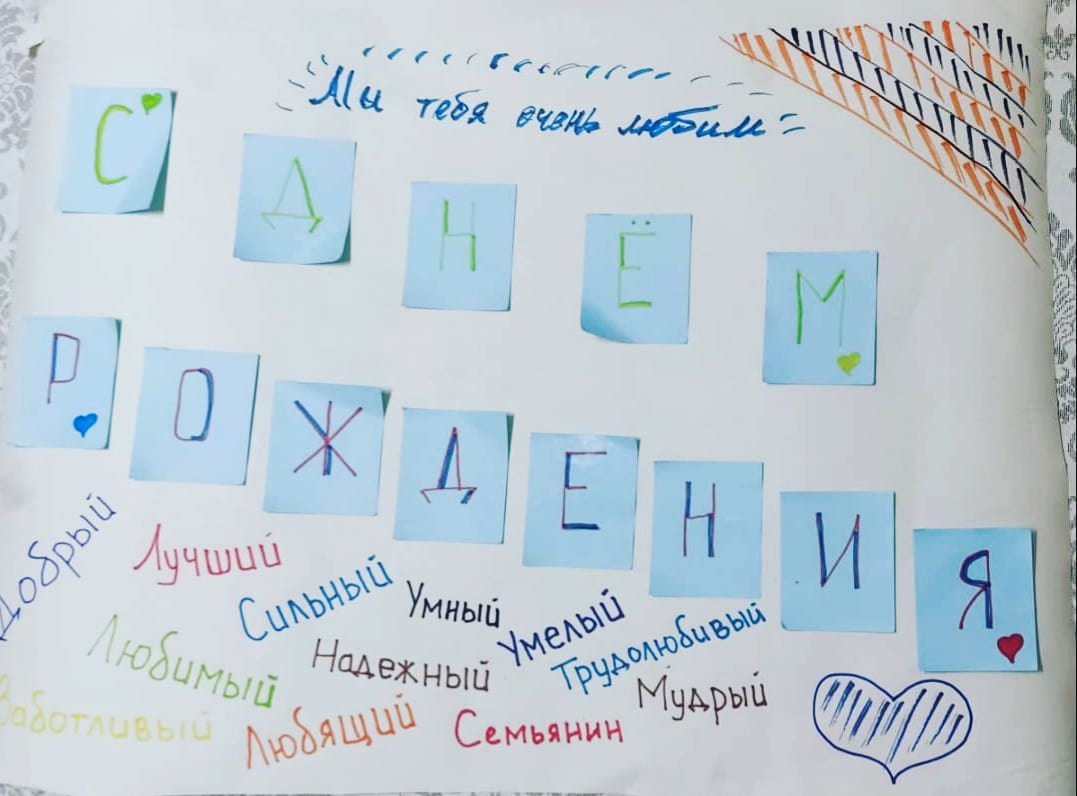 Мы тебя очень любим
С ДНЁМ
РОЖДЕНИЯ
Добрый
Лучший
Сильный
Умный
Умелый
Трудолюбивый
Любимый
Надежный
Мудрый
Заботливый
Любящий
Семьянин